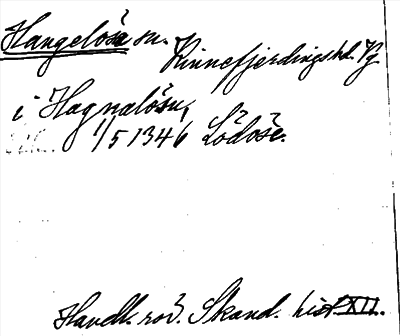 Hangelösa sn. Kinnefjerdings hd. Vg.
i Hagnalösu,
1/5 1346 Lödöse.
Handl. rör. Skand. hist. XII.